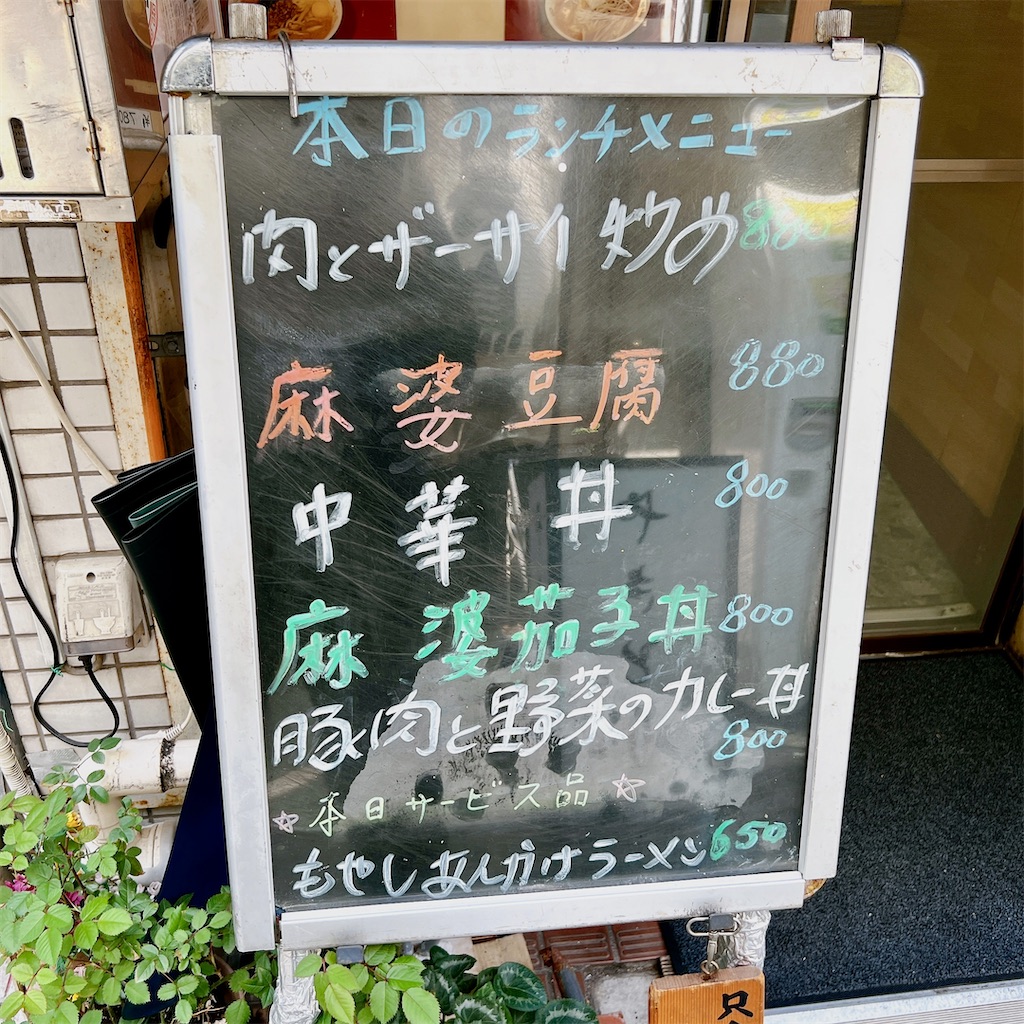 本日のランチメニュー
肉とザーサイ炒め 880
麻婆豆腐 880
中華丼 800
麻婆茄子丼 800
豚肉と野菜のカレー丼
800
☆本日サービス品☆
もやしあんかけラーメン 650